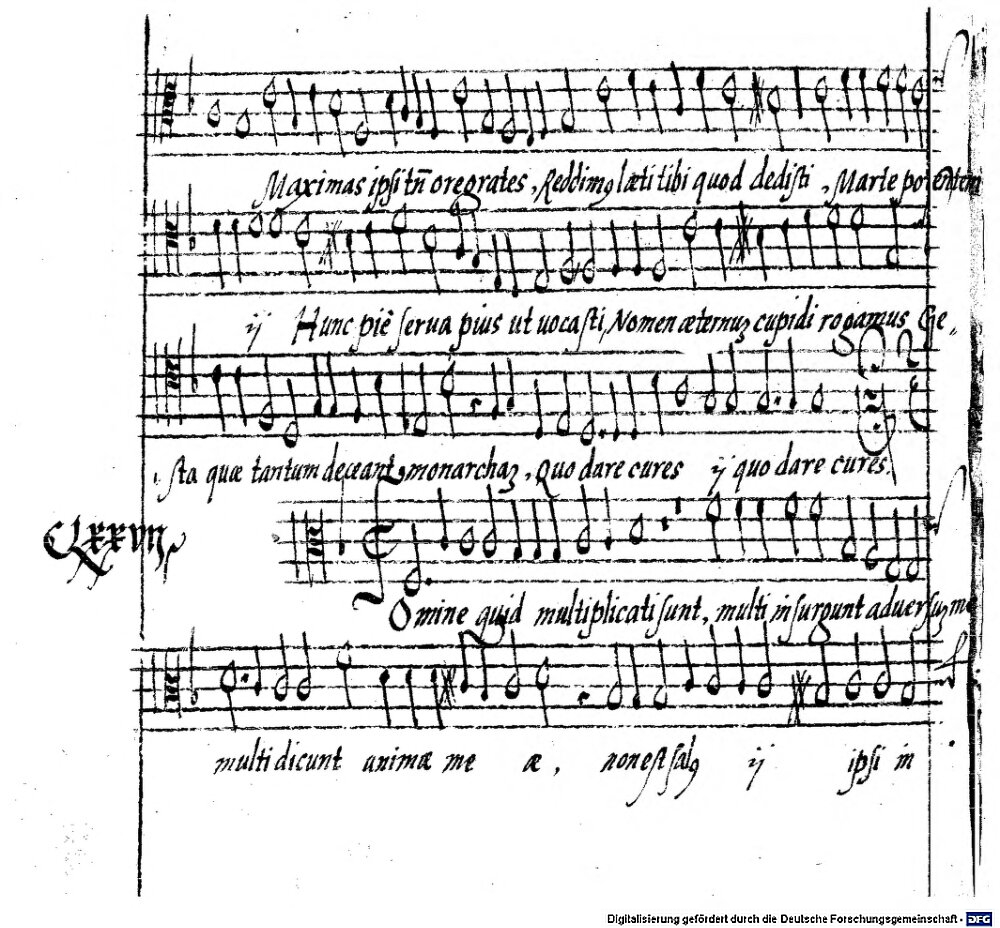 Maximas ipsi tñ ore grates, Reddimꝰ læti tibi quod dedisti, Marte potentem
ij Hunc piẽ serua pius ut uocasti, Nomen æternuꝫ cupidi rogamus Ge„
sta quæ tantum deceant monarchaꝫ, Quo dare cures ij quo dare cures.
CLXXVII
Domine quid multiplicati sunt, multi insurgunt aduersuꝫ me
multi dicunt animæ me æ, non est salꝰ ij ipsi in
Digitalisierung gefördert durch die Deutsche Forschungsgemeinschaft - DFG